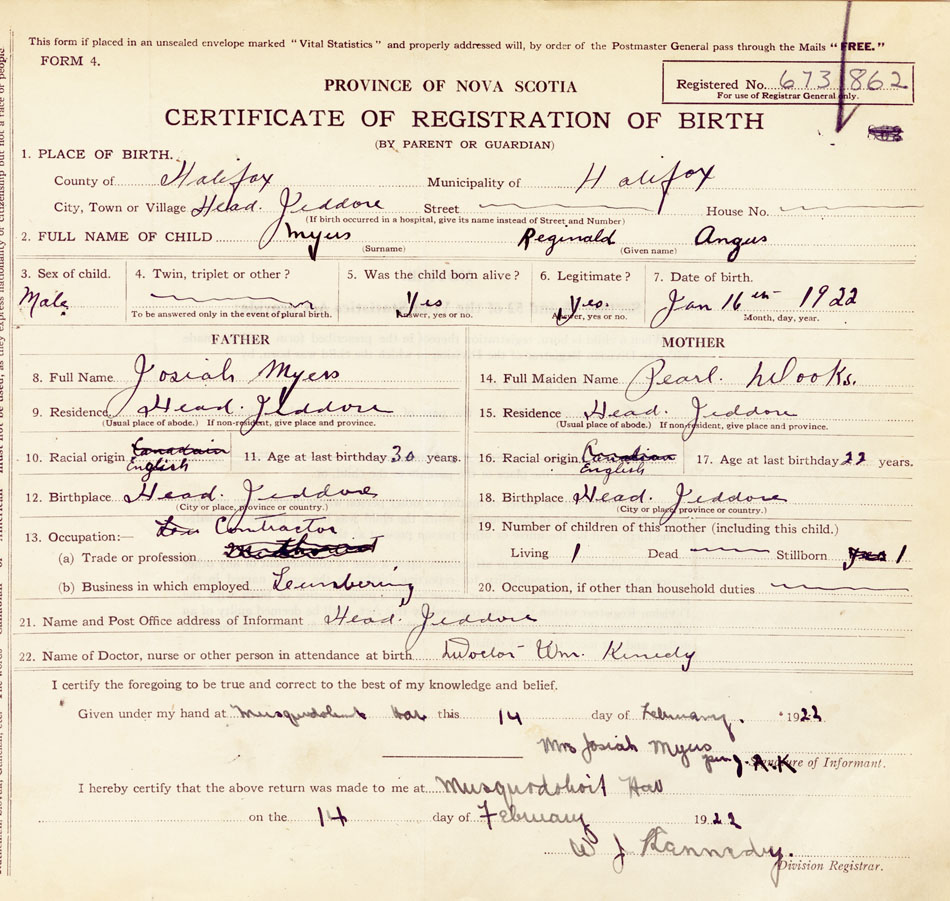 This form if placed in an unsealed envelope marked "Vital Statistics" and properly addressed will, by order of the Postmaster General pass through the Mails "FREE."
FORM 4.
PROVINCE OF NOVA SCOTIA
Registered No. 673862
For use of Registrar General only.
CERTIFICATE OF REGISTRATION OF BIRTH
(BY PARENT OR GUARDIAN)
1. PLACE OF BIRTH.
County of Halifax Municipality of Halifax
City, Town or Village Head. Jeddore Street House No.
(If birth occurred in a hospital, give its name instead of Street and Number)
2. FULL NAME OF CHILD Myers Reginald Angus
(Surname) (Given name)
3. Sex of child. 4. Twin, triplet or other? 5. Was the child born alive? 6. Legitimate? 7. Date of birth.
Male Yes Yes. Jan 16th 1922
To be answered only in the event of plural birth. Answer, yes or no. Answer, yes or no. Month, day, year.
FATHER MOTHER
8. Full Name Josiah Myers 14. Full Maiden Name Pearl.
9. Residence Head. Jeddore 15. Residence Head. Jeddore
(Usual place of abode.) If non-resident, give place and province. (Usual place of abode.) If non-resident, give place and province.
10. Racial origin Canadain English 11. Age at last birthday 30 years. 16. Racial origin Canadian English 17. Age at last birthday 22 years.
12. Birthplace Head. Jeddore 18. Birthplace Head. Jeddore
(City or place, province or country.) (City or place, province or country.)
13. Occupation:— Contractor 19. Number of children of this mother (including this child.)
(a) Trade or profession Living 1 Dead Stillborn 1
(b) Business in which employed Lumbering 20. Occupation, if other than household duties
21. Name and Post Office address of Informant Head. Jeddore
22. Name of Doctor, nurse or other person in attendance at birth Doctor Wm. Kenedy
I certify the foregoing to be true and correct to the best of my knowledge and belief.
Given under my hand at Musquodoboit Har this 14 day of February. 1922
Mrs Josiah Myers
Signature of Informant.
I hereby certify that the above return was made to me at Musquodoboit Har
on the 14 day of February 1922
W J Kennedy.
Division Registrar.